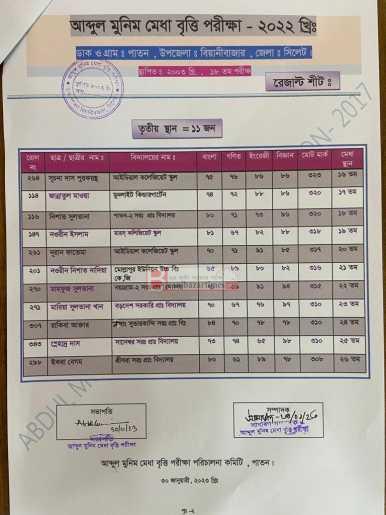 আব্দুল মুনিম মেধা বৃত্তি পরীক্ষা - ২০২২ খ্রিঃ
ডাক ও গ্রাম : পাতন , উপজেলা : বিয়ানীবাজার , জেলা : সিলেট ।
স্থাপিত : ২০০৩ খ্রি. , ১৮ তম পরীক্ষা
রেজাল্ট শীট :
তৃতীয় স্থান = ১১ জন
রোল নং ছাত্র / ছাত্রীর নাম : বিদ্যালয়ের নাম : বাংলা গণিত ইংরেজী বিজ্ঞান মোট মার্ক মেধা স্থান
২৬৪ সূচনা দাস পুরকায়স্থ আইডিয়াল কলেজিয়েট স্কুল ৭৫ ৭৬ ৮৬ ৮৬ ৩২৩ ১৬ তম
১১৪ জান্নাতুল মাওয়া মুনলাইট কিন্ডারগার্টেন ৭৪ ৭২ ৮৮ ৮৬ ৩২০ ১৭ তম
১১৬ নিশাত সুলতানা পাতন-২ সরঃ প্রাঃ বিদ্যালয় ৮০ ৭১ ৭৩ ৯৬ ৩২০ ১৮ তম
১৪৭ নওরীন ইসলাম কলেজিয়েট স্কুল ৮১ ৬৭ ৮২ ৮৮ ৩১৮ ১৯ তম
২৬১ নুরান ফাতেমা আইডিয়াল কলেজিয়েট স্কুল ৭০ ৭১ ৯১ ৮৫ ৩১৭ ২০ তম
২০১ নওরীন নিশাত নাদিয়া মোল্লাপুর ইউনিয়ন কে,জি ৬৫ ৮৯ ৮০ ৮২ ৩১৬ ২১ তম
২৭০ মাহফুজ সুলতানা ২২ তম
২৭১ মারিয়া সুলতানা খান বড়দেশ সরকারি প্রাঃ বিদ্যালয় ৭০ ৬৭ ৭৬ ৯৭ ৩১০ ২৩ তম
৩০৭ রাকিবা আক্তার ৮৪ ৭০ ৭৮ ৭৮ ৩১০ ২৪ তম
৩৪৩ স্নেহাদ্র দাস ৭৩ ৭৪ ৬৫ ৯৮ ৩১০ ২৫ তম
২৯৮ ইকরা বেগম শ্রীধরা সরঃ প্রাঃ বিদ্যালয় ৮০ ৬১ ৮৯ ৭৮ ৩০৮ ২৬ তম
সভাপতি
আব্দুল মুনিম মেধা বৃত্তি পরীক্ষা
সম্পাদক
আব্দুল মুনিম মেধা বৃত্তি পরীক্ষা
আব্দুল মুনিম মেধা বৃত্তি পরীক্ষা পরিচালনা কমিটি , পাতন ।
৩০ জানুয়ারী, ২০২৩ খ্রিঃ
পৃঃ - ২